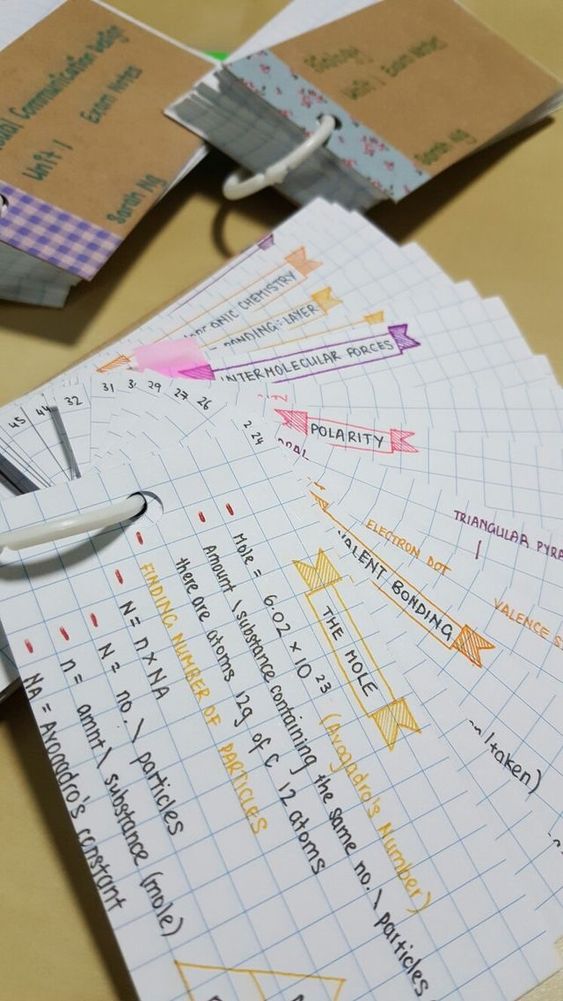 Communication Design
Unit 1 Exam Notes
Sarah Ng
Biology
Unit 1 Exam Notes
Sarah Ng
CHEMISTRY
LAYER
INTERMOLECULAR FORCES
45 44 32 31 29 27 26
24
POLARITY
ELECTRON DOT
TRIANGULAR
BONDING
VALENCE
THE MOLE
Mole = 6.02 x 10 23 (Avogadro's Number)
Amount \ substance containing the same no. \ particles
there are atoms 12g of C 12 atoms
FINDING NUMBER OF PARTICLES
N = n x NA
N = no. \ particles
n = amnt \ substance (mole)
NA = Avogadro's constant
taken)